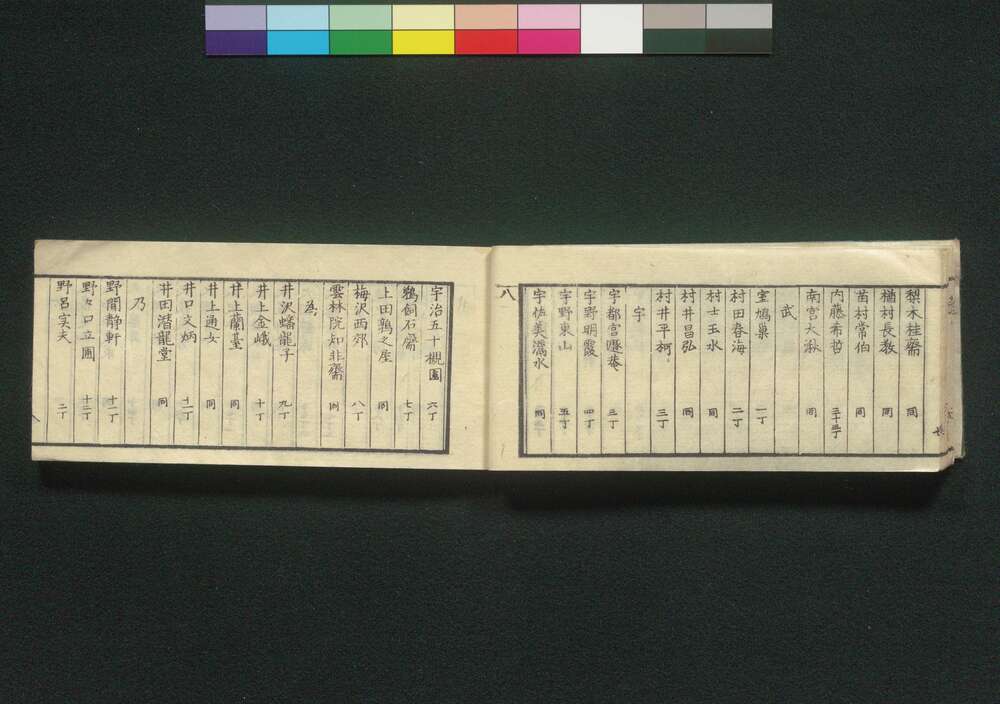 梨木桂斎 同
楢村長教 同
苗村常伯 同
内藤希哲 三十三丁
南宮大湫 同
武
室鳩巣 一丁
村田春海 二丁
村士玉水 同
村井昌弘 同
村井平柯 三丁
宇
宇都宮遯菴 三丁
宇野明霞 四丁
宇野東山 五丁
宇佐美灊水 同
八
宇治五十槻園 六丁
鵜飼石斎 七丁
上田鶉之座 同
梅沢西郊 八丁
雲林院知非斎 同
為
井沢蟠龍子 九丁
井上金峨 十丁
井上蘭䑓 同
井上通女 同
井口文炳 十一丁
井田潜龍堂 同
乃
野間静軒 十一丁
野々口立圃 十二丁
野呂実夫 二丁